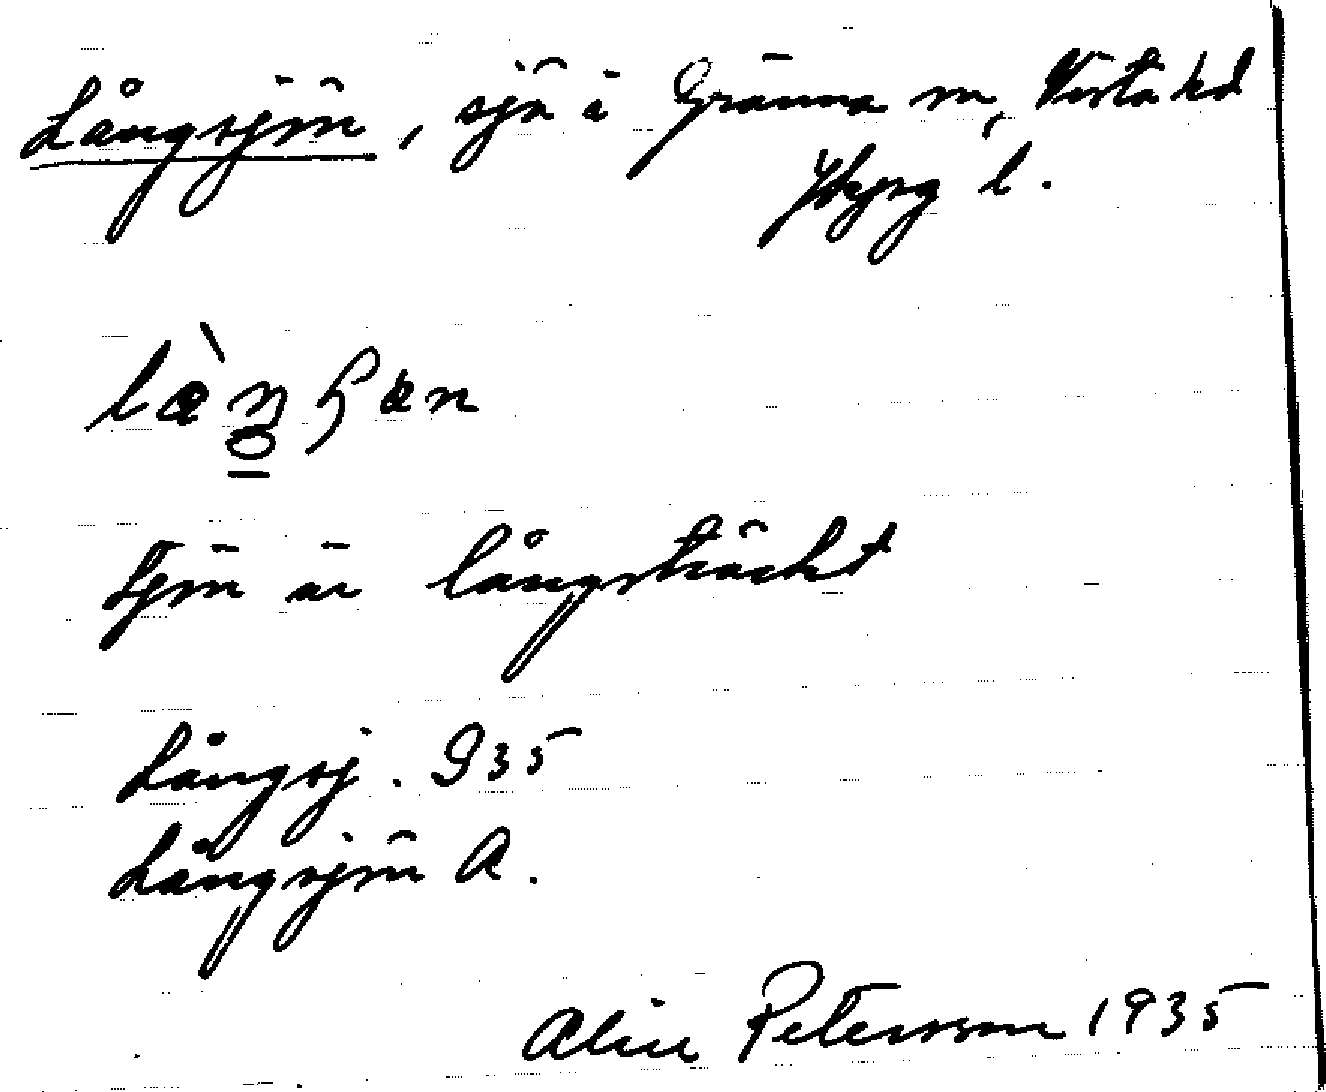 Långsjön, sjö i Gränna sn, Vista hd
Jkpg l.
Sjön är långsträckt
Långsj. G35
Långsjön A.
Alice Petersson 1935